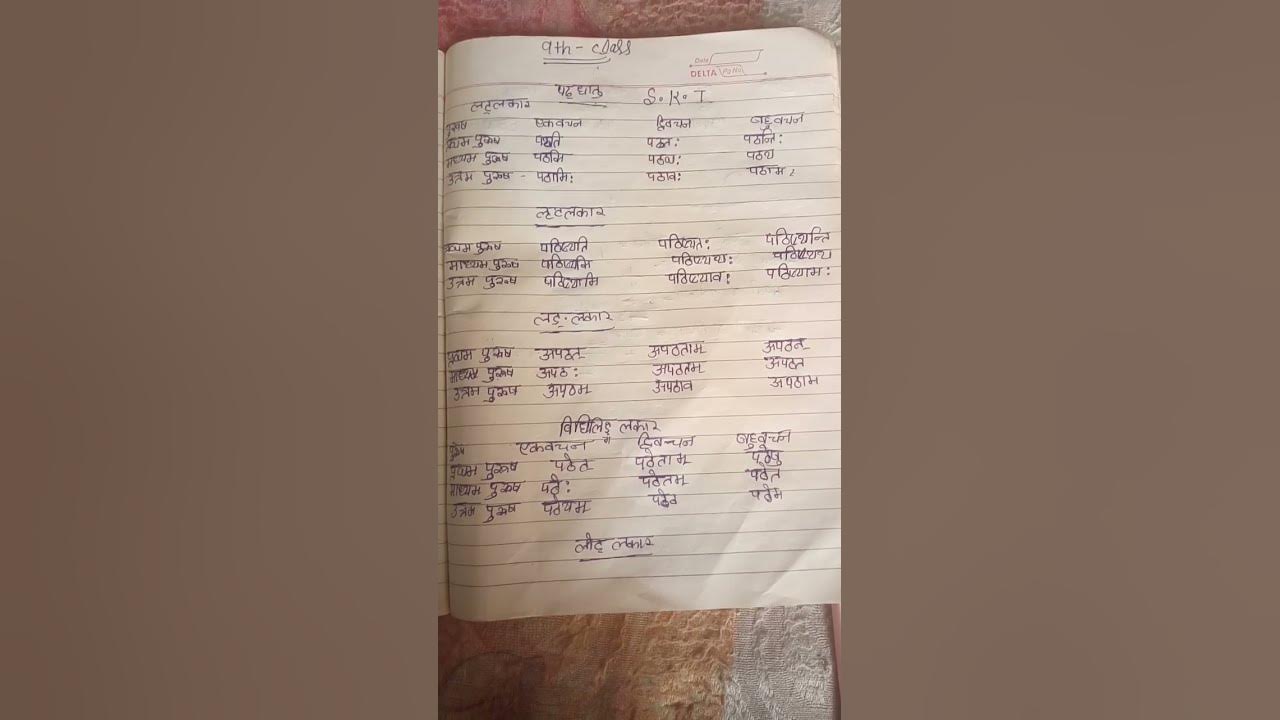 9th - class
Date
DELTA Pg No.
पठ् धातु S.K.T
लट्लकार
पुरुष एकवचन द्विवचन बहुवचन
प्रथम पुरुष पठति पठत: पठन्ति:
माध्यम पुरुष पठमि पठथ: पठथ
उत्तम पुरुष - पठामि: पठाव: पठाम:
लृटलकार
प्रथम पुरुष पठिष्यति पठिष्यत: पठिष्यन्ति
माध्यम पुरुष पठिष्यमि पठिष्यथ: पठिष्यथ
उत्तम पुरुष पठिष्यामि पठिष्याव: पठिष्याम:
लङ्लकार
प्रथम पुरुष अपठत् अपठताम अपठन
माध्यम पुरुष अपठ: अपठतम अपठत
उत्तम पुरुष अपठम अपठाव अपठाम
विधिलिङ् लकार
पुरुष एकवचन द्विवचन बहुवचन
प्रथम पुरुष पठेत पठेताम पठेषु
माध्यम पुरुष पठे: पठेतम पठेत
उत्तम पुरुष पठेयम पठेव पठेम
लोट् लकार